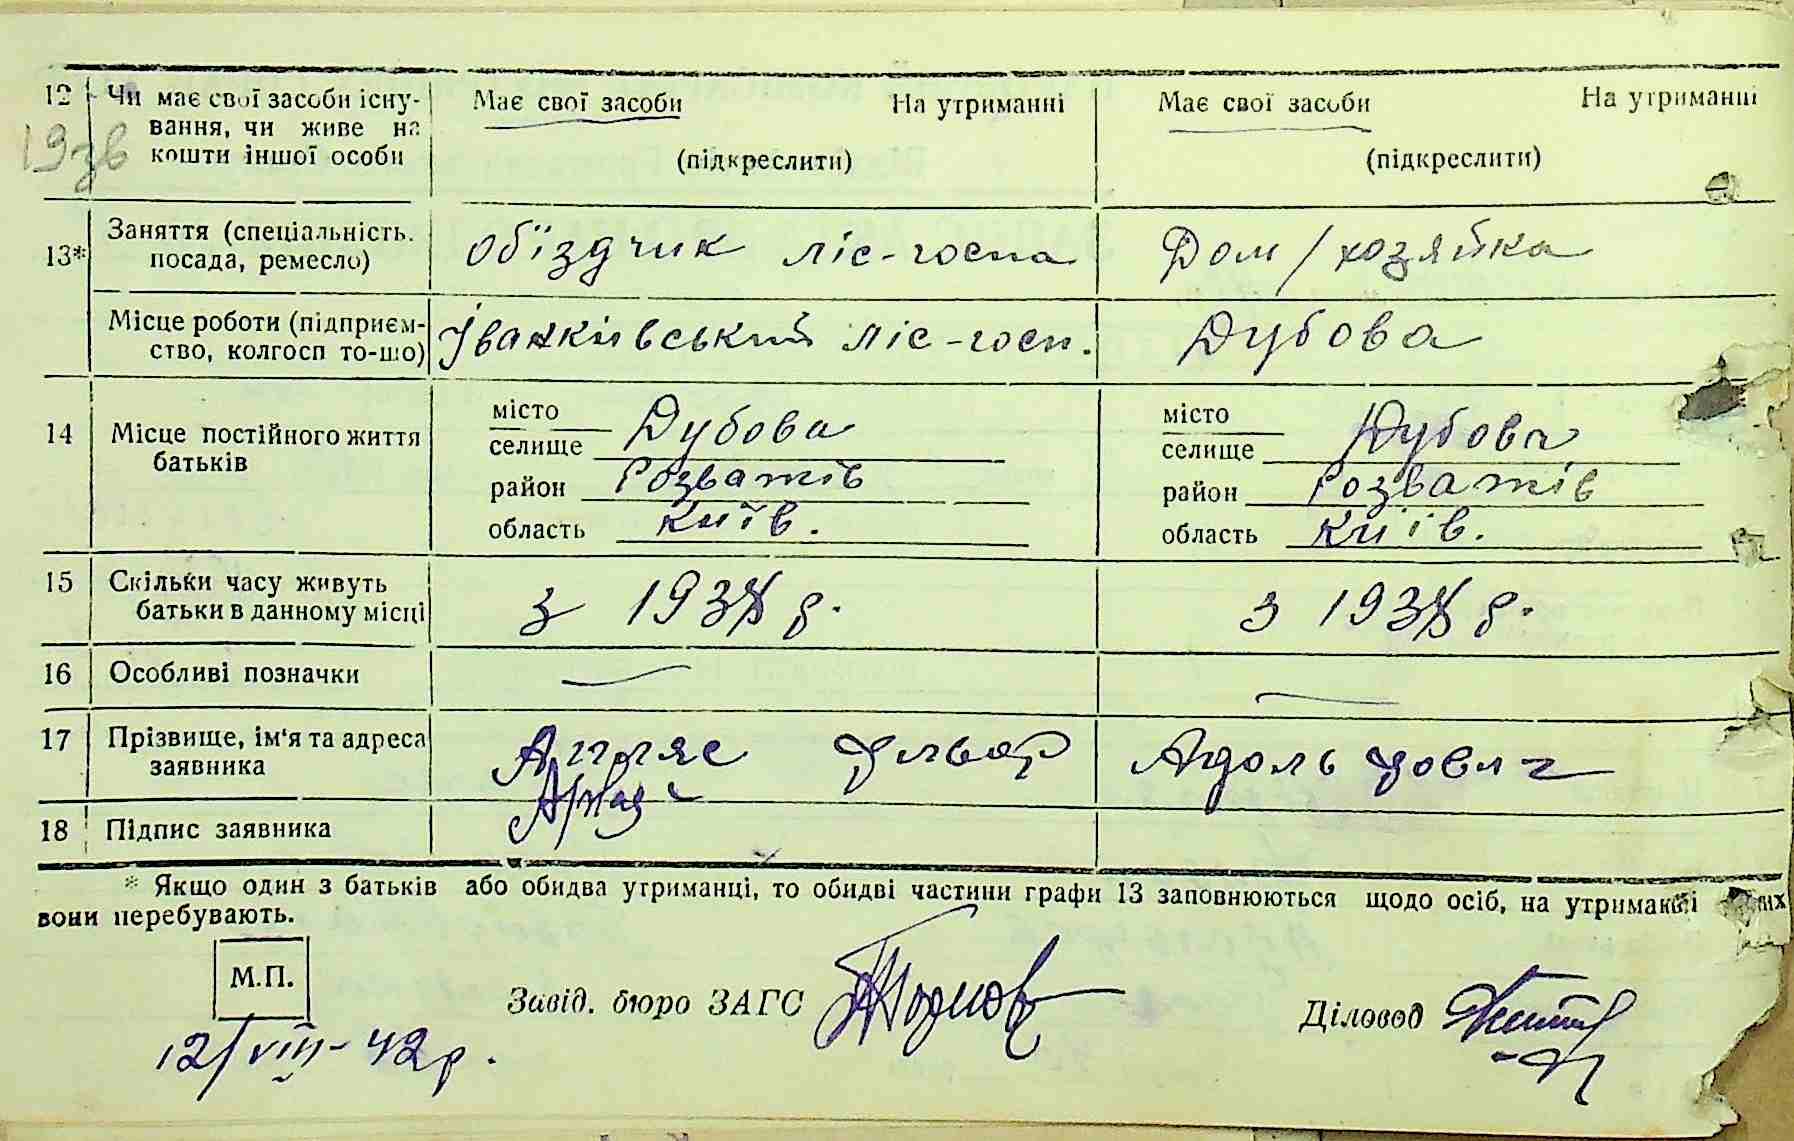 12 Чи має свої засоби існу- Має свої засоби На утриманні Має свої засоби На утриманні
вання, чи живе на
19зв кошти іншої особи (підкреслити) (підкреслити)
13* Заняття (спеціальність. обʼїздчик ліс-госпа Дом/хозяйка
посада, ремесло)
Місце роботи (підприєм- Іванківський ліс-госп. Дубова
ство, колгосп то-що)
14 Місце постійного життя батьків місто селище Дубова місто селище Дубова
район Розважів район Розважів
область Київ. область Київ.
15 Скільки часу живуть з 1938 р. з 1938 р.
батьки в данному місці
16 Особливі позначки — —
17 Прізвище, ім'я та адреса Адольфович
заявника
18 Підпис заявника
* Якщо один з батьків або обидва утриманці, то обидві частини графи 13 заповнюються щодо осіб, на утриманні
вони перебувають.
М.П. Завід. бюро ЗАГС Діловод
12/VIII-42р.